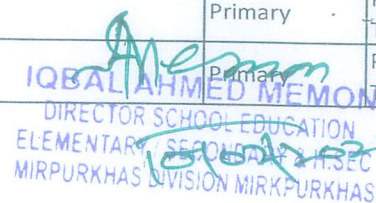 Primary
Primary
IQBAL AHMED MEMON
DIRECTOR SCHOOL EDUCATION
ELEMENTARY, SECONDARY & H.SEC
MIRPURKHAS DIVISION MIRKPURKHAS